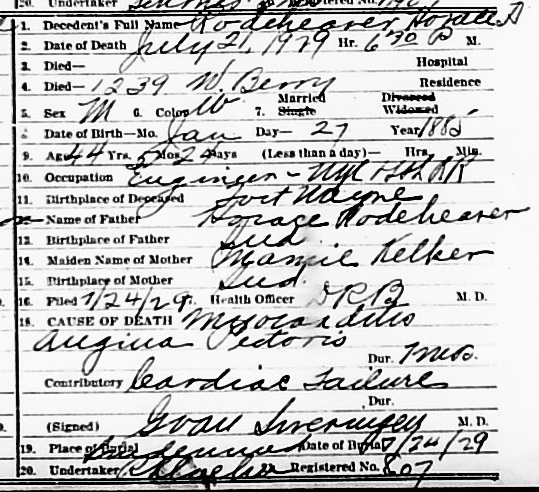 20. Undertaker
1. Decedent's Full Name Rodeheaver Horace A
2. Date of Death July 21, 1929 Hr. 6 30 P M.
3. Died— Hospital
4. Died— 1239 W. Berry Residence
5. Sex M 6. Color W 7. Married Single Divorced Widowed
Date of Birth—Mo. Jan Day— 27 Year 1885
9. Age 44 Yrs. 5 Mos. 24 Days (Less than a day)— Hrs. Min.
10. Occupation Enginger - NYC RR
11. Birthplace of Deceased Fort Wayne
Name of Father Horace Rodeheaver
13. Birthplace of Father Ind
14. Maiden Name of Mother Mamie Kelker
15. Birthplace of Mother Ind.
16. Filed 7/24/29. Health Officer M. D.
18. CAUSE OF DEATH Myocarditis
Angina Pectoris
Dur. 7 mos.
Contributory Cardiac Failure
Dur.
(Signed) M. D.
19. Place of Burial Lindenwood Date of Burial 7/24/29
20. Undertaker Klaehn Registered No. 807